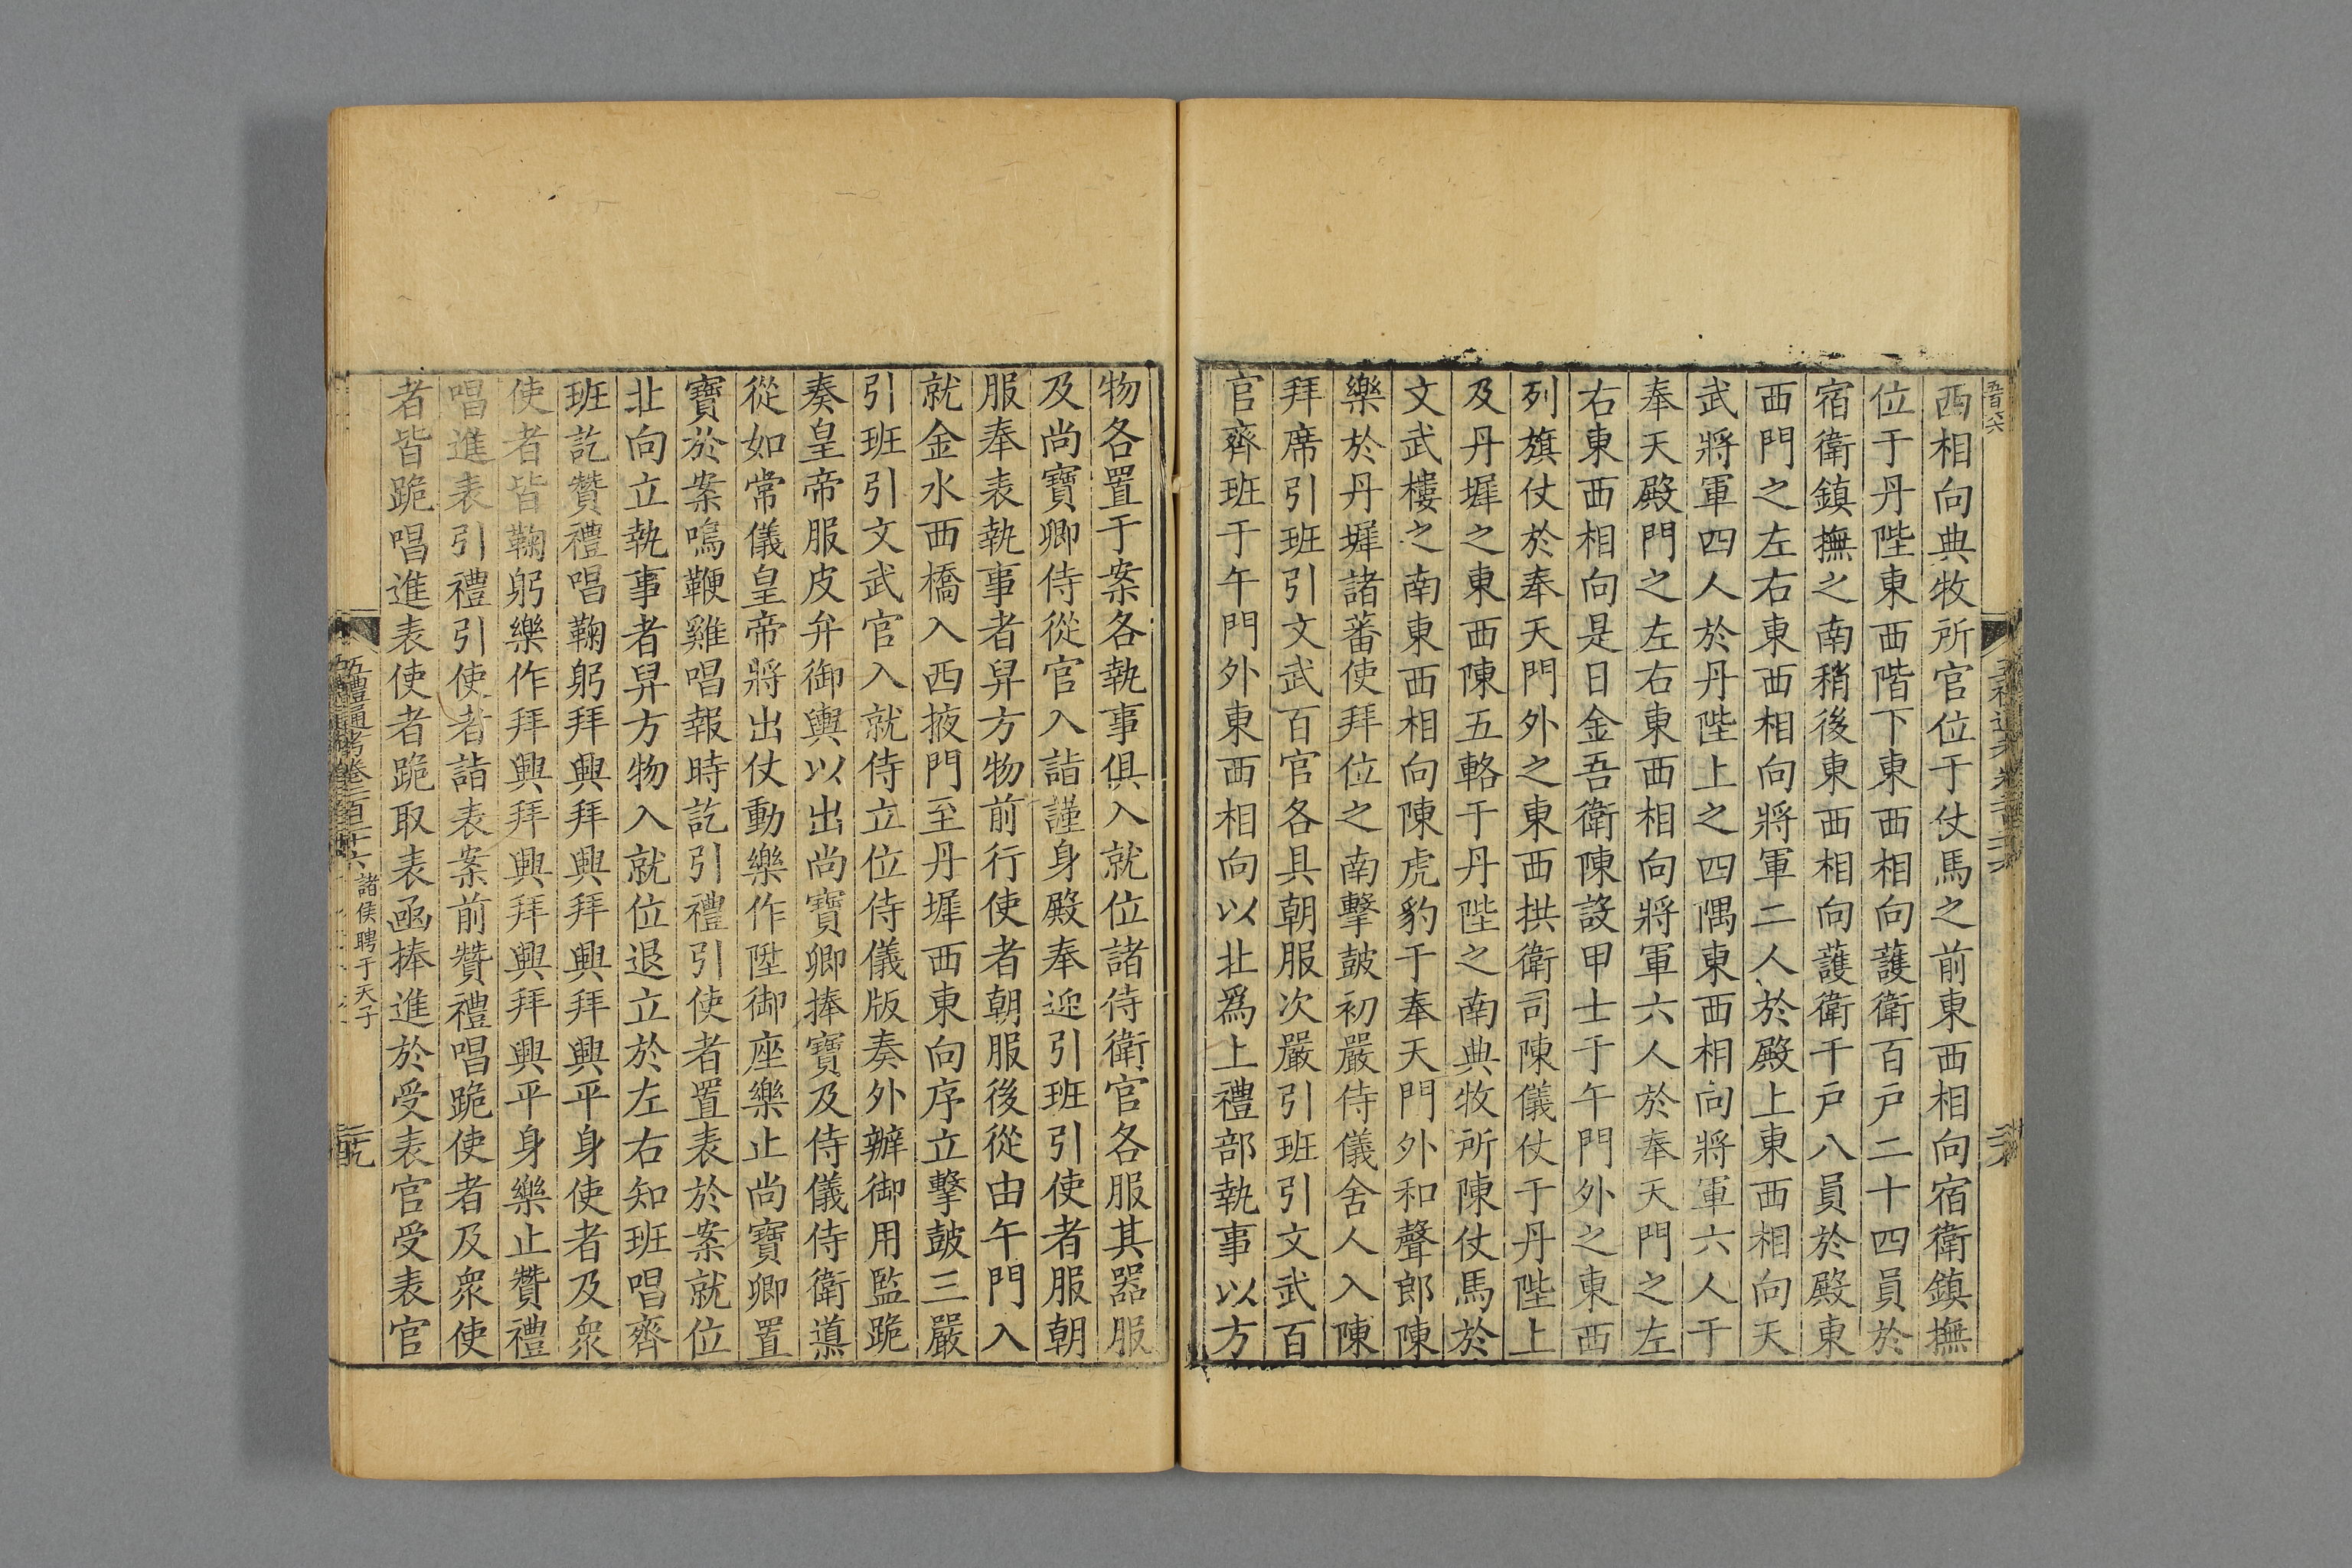 西相向典牧所官位于仗馬之前東西相向宿衛鎮撫
位于丹陛東西階下東西相向護衛百戸二十四員於
宿衛鎮撫之南稍後東西相向護衛千戸八員於殿東
西門之左右東西相向將軍二人於殿上東西相向天
武將軍四人於丹陛上之四隅東西相向將軍六人于
奉天殿門之左右東西相向將軍六人於奉天門之左
右東西相向是日金吾衛陳設甲士于午門外之東西
列旗仗於奉天門外之東西拱衛司陳儀仗于丹陛上
及丹墀之東西陳五輅于丹陛之南典牧所陳仗馬於
文武樓之南東西相向陳虎豹于奉天門外和聲郎陳
樂於丹墀諸蕃使拜位之南擊鼓初嚴侍儀舍人入陳
拜席引班引文武百官各具朝服次嚴引班引文武百
官齊班于午門外東西相向以北爲上禮部執事以方
物各置于案各執事俱入就位諸侍衛官各服其器服
及尚寶卿侍從官入詣謹身殿奉迎引班引使者服朝
服奉表執事者舁方物前行使者朝服後從由午門入
就金水西橋入西掖門至丹墀西東向序立擊鼓三嚴
引班引文武官入就侍立位侍儀版奏外辦御用監跪
奏皇帝服皮弁御輿以出尚寶卿捧寶及侍儀侍衛導
從如常儀皇帝將出仗動樂作陞御座樂止尚寶卿置
寶於案鳴鞭雞唱報時訖引禮引使者置表於案就位
北向立執事者舁方物入就位退立於左右知班唱齊
班訖贊禮唱鞠躬拜興拜興拜興拜興平身使者及衆
使者皆鞠躬樂作拜興拜興拜興拜興平身樂止贊禮
唱進表引禮引使者詣表案前贊禮唱跪使者及衆使
者皆跪唱進表使者跪取表函捧進於受表官受表官
五禮通考卷二百二十六 諸侯聘于天子